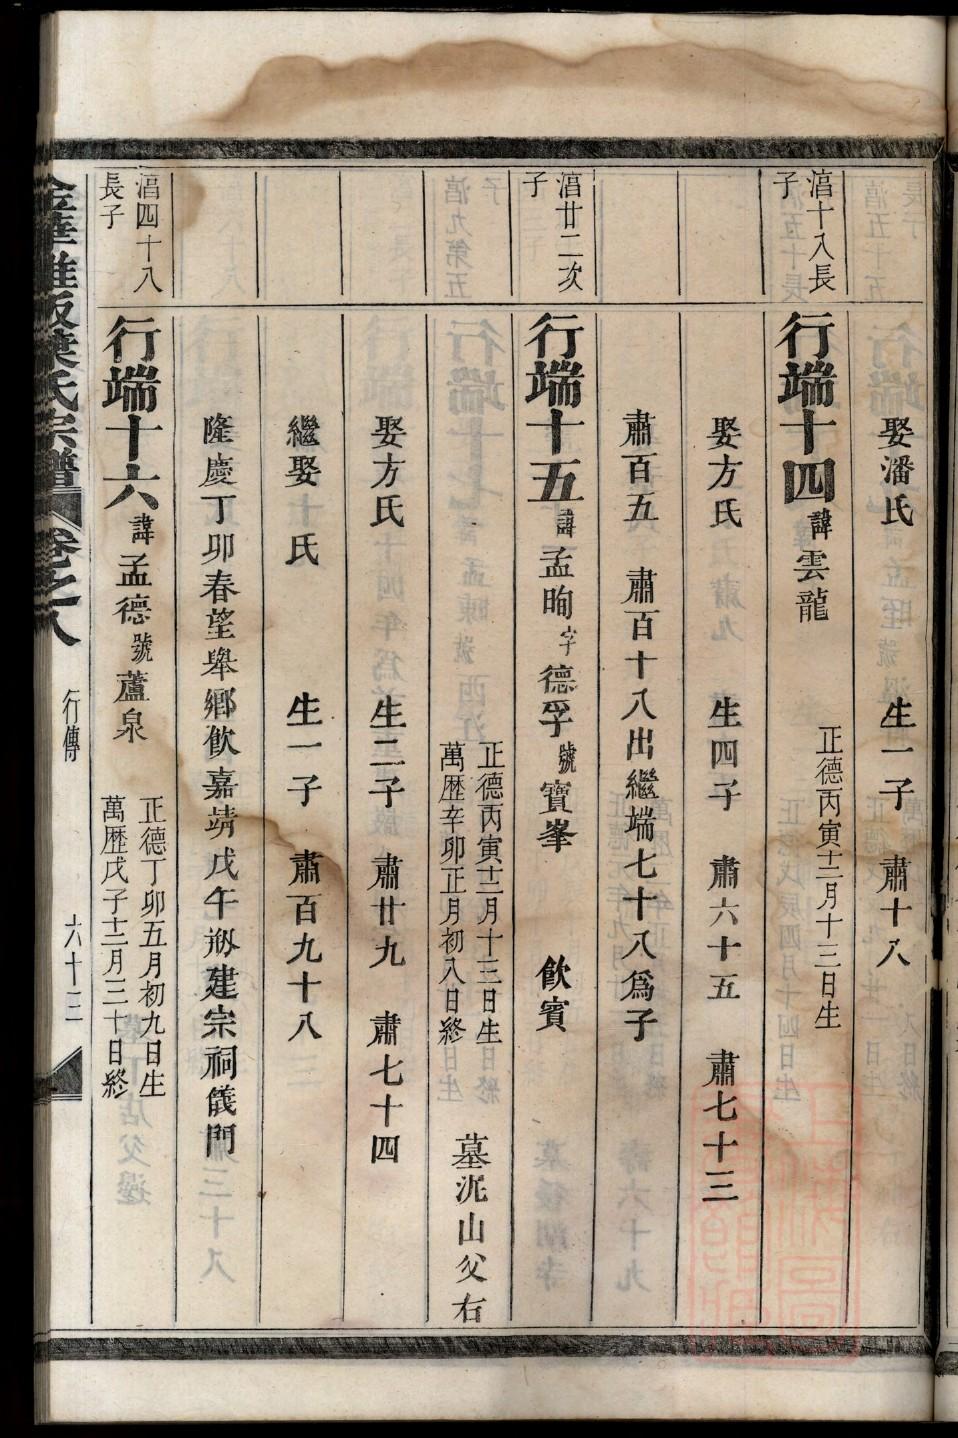 娶潘氏 生一子 肅十八
湻十八長子
行端十四 諱雲龍 正德丙寅十二月十三日生
娶方氏 生四子 肅六十五 肅七十三
肅百五 肅百十八出繼端七十八爲子
湻廿二次子
行端十五 諱孟昫 字德孚 號寶峯 飲賓
正德丙寅十二月十三日生
萬歷辛卯正月初八日終
墓沘山父右
娶方氏 生二子 肅廿九 肅七十四
繼娶氏 生一子 肅百九十八
隆慶丁卯春望舉鄉飲嘉靖戊午剏建宗祠儀門
湻四十八長子
行端十六 諱孟德 號蘆泉
正德丁卯五月初九日生
萬歷戊子十二月三十日終
葉氏宗譜 卷之八 行傳 六十三